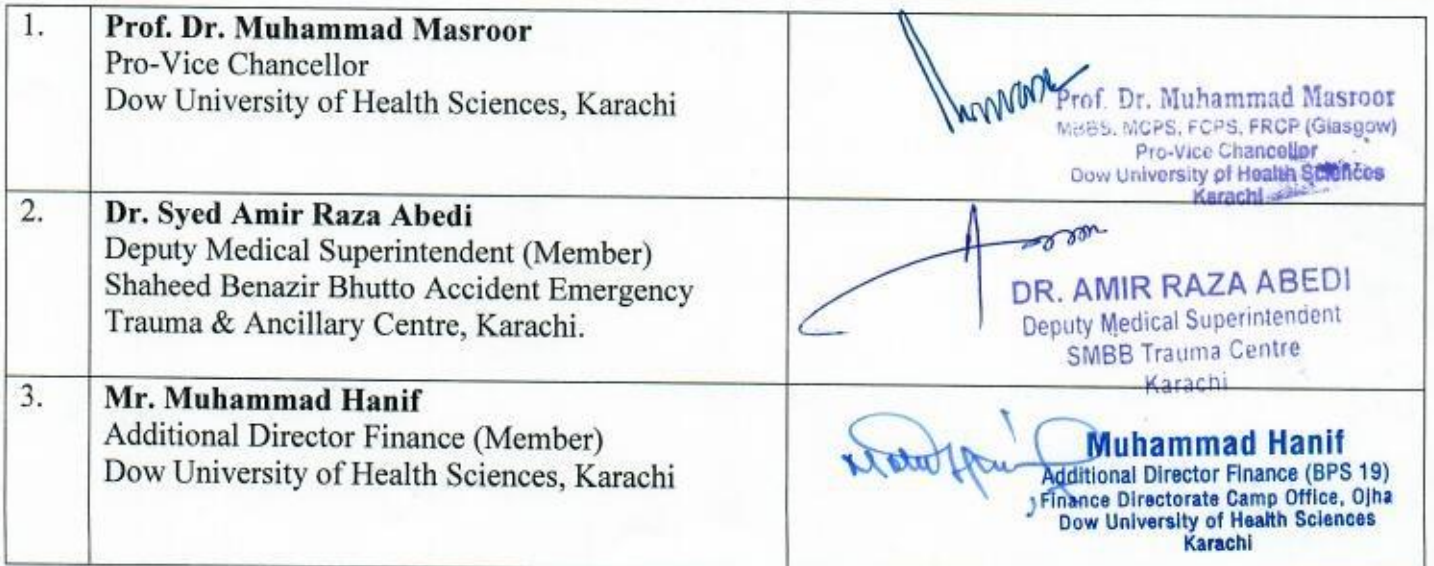 1.
Prof. Dr. Muhammad Masroor
Pro-Vice Chancellor
Dow University of Health Sciences, Karachi
Prof. Dr. Muhammad Masroor
MBBS, MCPS, FCPS, FRCP (Glasgow)
Pro-Vice Chancellor
Dow University of Health Sciences
Karachi
2.
Dr. Syed Amir Raza Abedi
Deputy Medical Superintendent (Member)
Shaheed Benazir Bhutto Accident Emergency
Trauma & Ancillary Centre, Karachi.
DR. AMIR RAZA ABEDI
Deputy Medical Superintendent
SMBB Trauma Centre
Karachi
3.
Mr. Muhammad Hanif
Additional Director Finance (Member)
Dow University of Health Sciences, Karachi
Muhammad Hanif
Additional Director Finance (BPS 19)
Finance Directorate Camp Office, Ojha
Dow University of Health Sciences
Karachi